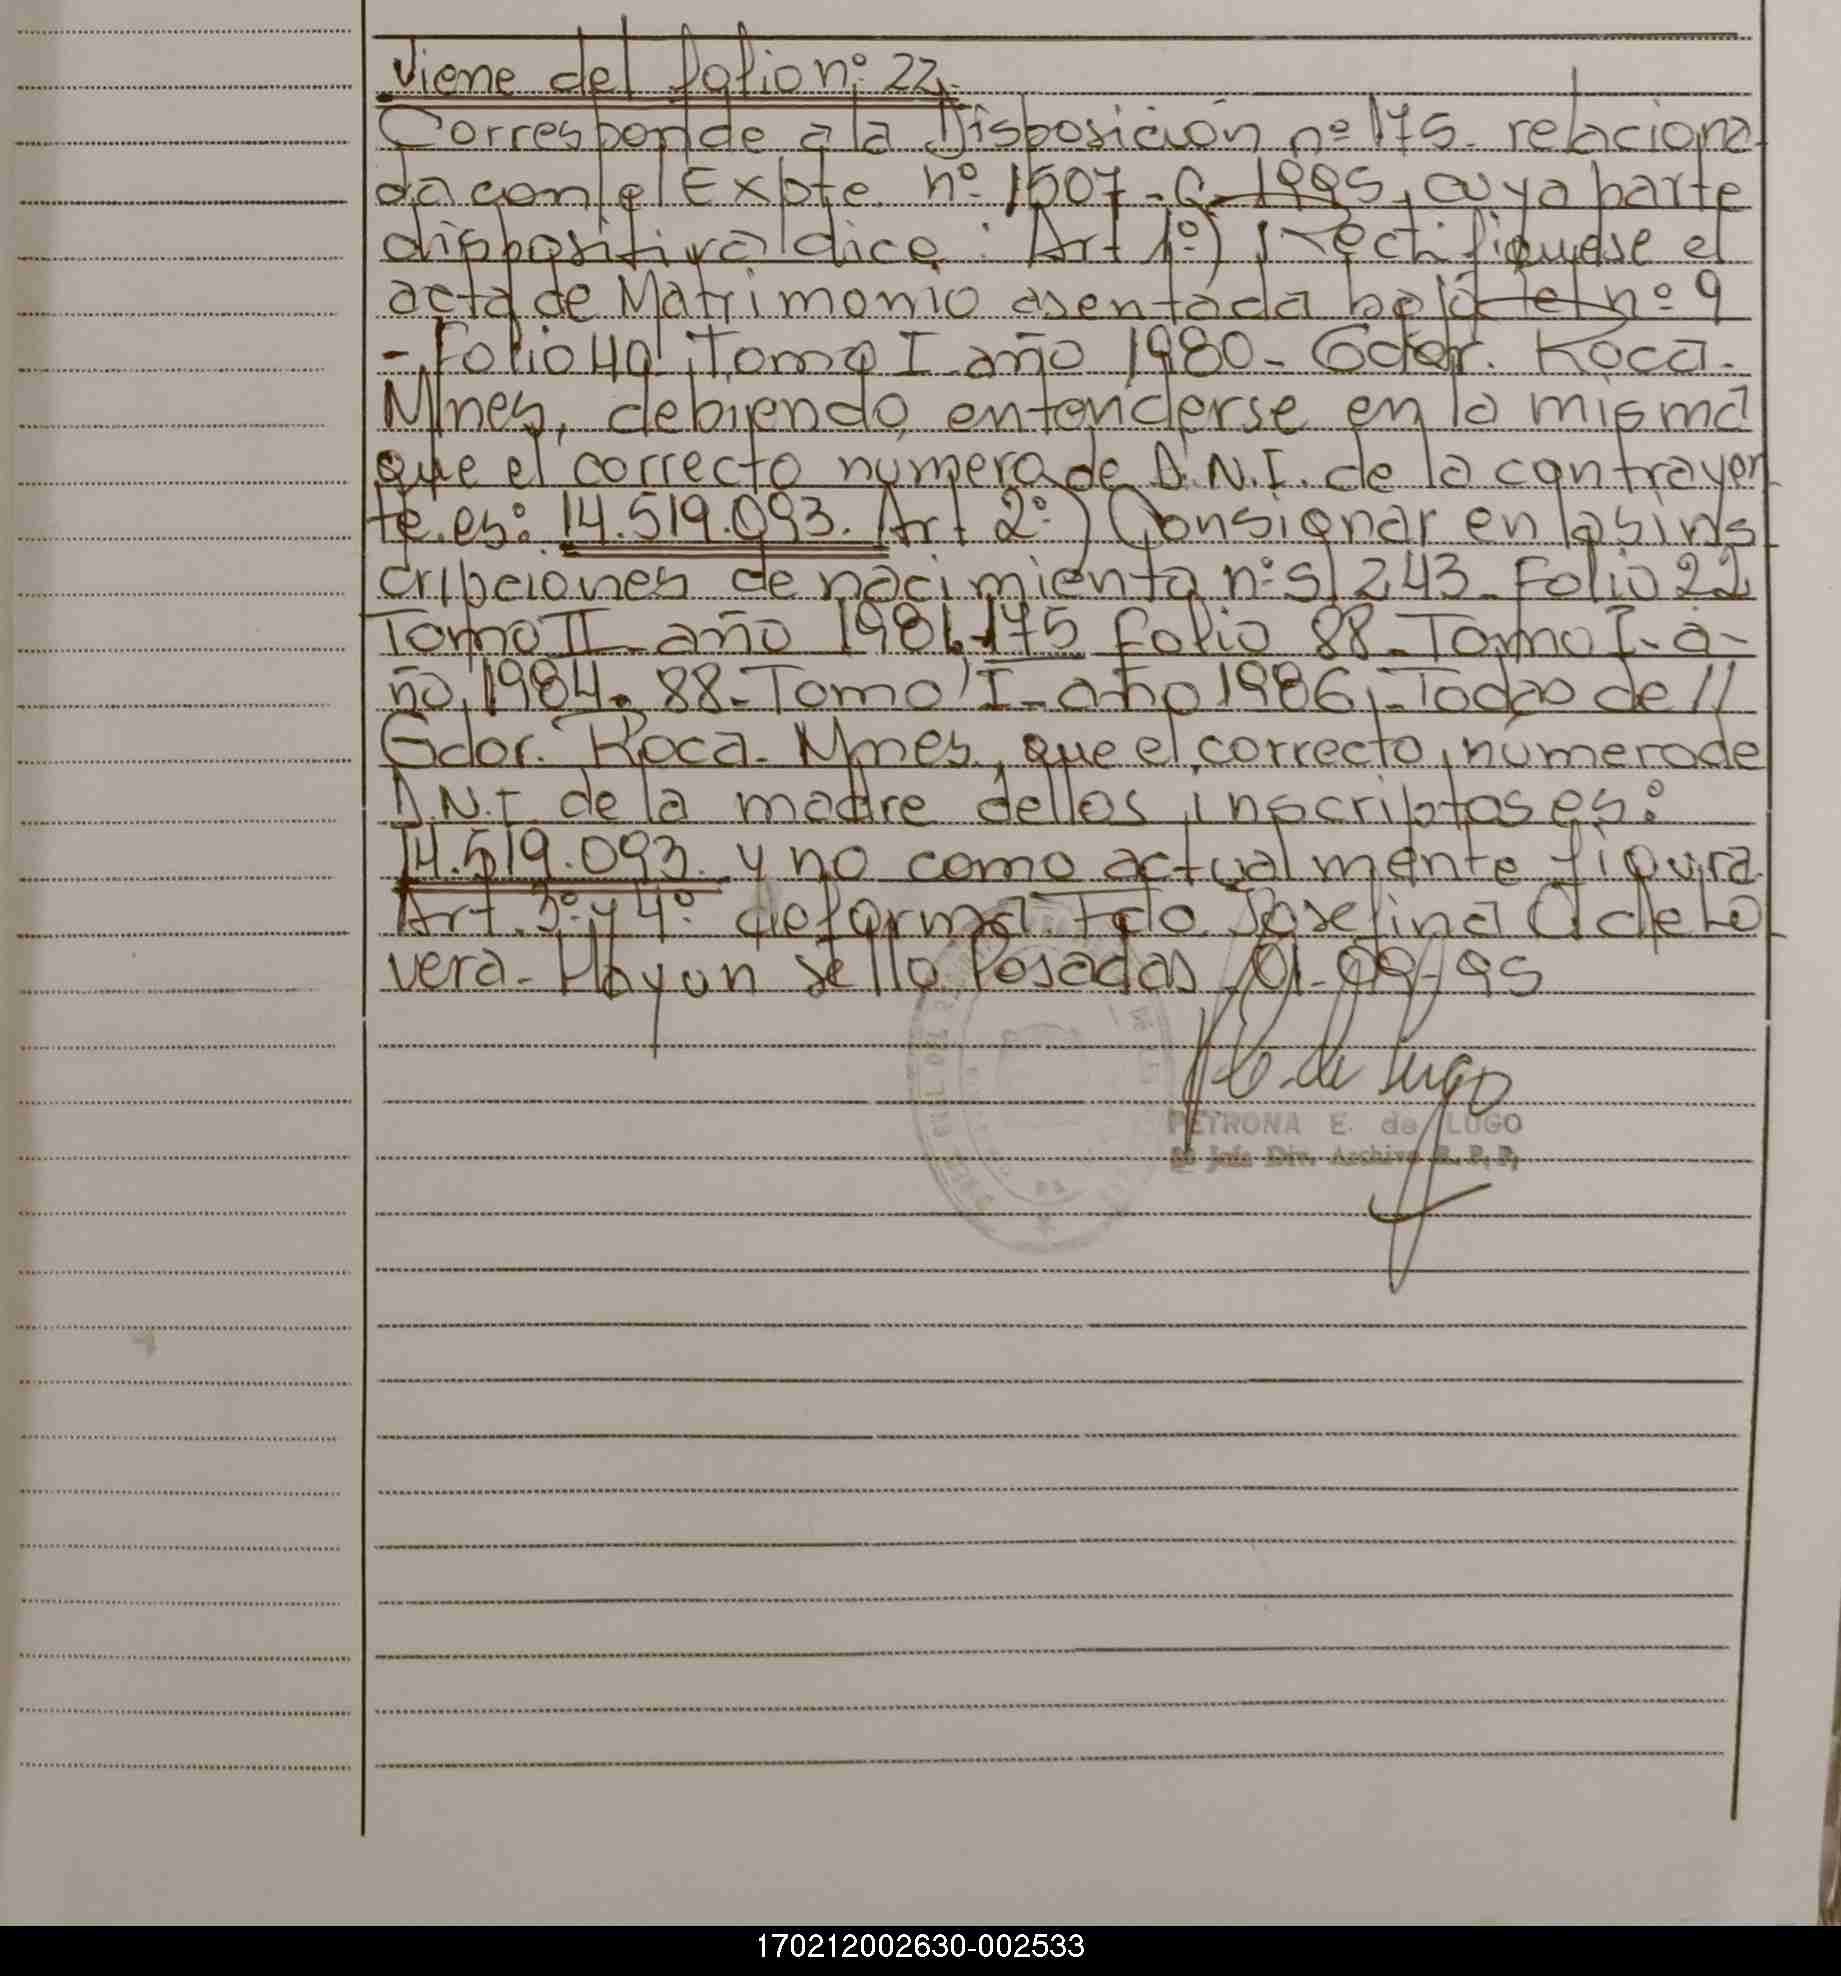 Viene del folio nº 22.
Corresponde a la Disposición nº 175. relaciona
da con el Expte. nº 1507-C-1995, cuya parte
dispositiva dice: Art 1º) Rectifiquese el
acta de Matrimonio asentada bajo el nº 9
- Folio 49 Tomo I año 1980- Gdor. Roca.
Mnes, debiendo entenderse en la misma
que el correcto numero de D.N.I. de la contrayen
te es: 14.519.093. Art 2º) Consignar en las ins
cripciones de nacimiento nºs/ 243- Folio 22
Tomo II- año 1981.-175 folio 88-Tomo I- a-
ño 1984. 88-Tomo I- año 1986,-Todas de //
Gdor. Roca- Mnes., que el correcto numero de
D.N.I de la madre de llos inscriptos es:
14.519.093. y no como actualmente figura.
Art. 3º y 4º de forma Fdo. Josefina C de Lo
vera- Hay un sello Posadas 01-09-95
PETRONA E. de LUGO
Jefe Div. Archivo R. P. P.
170212002630-002533